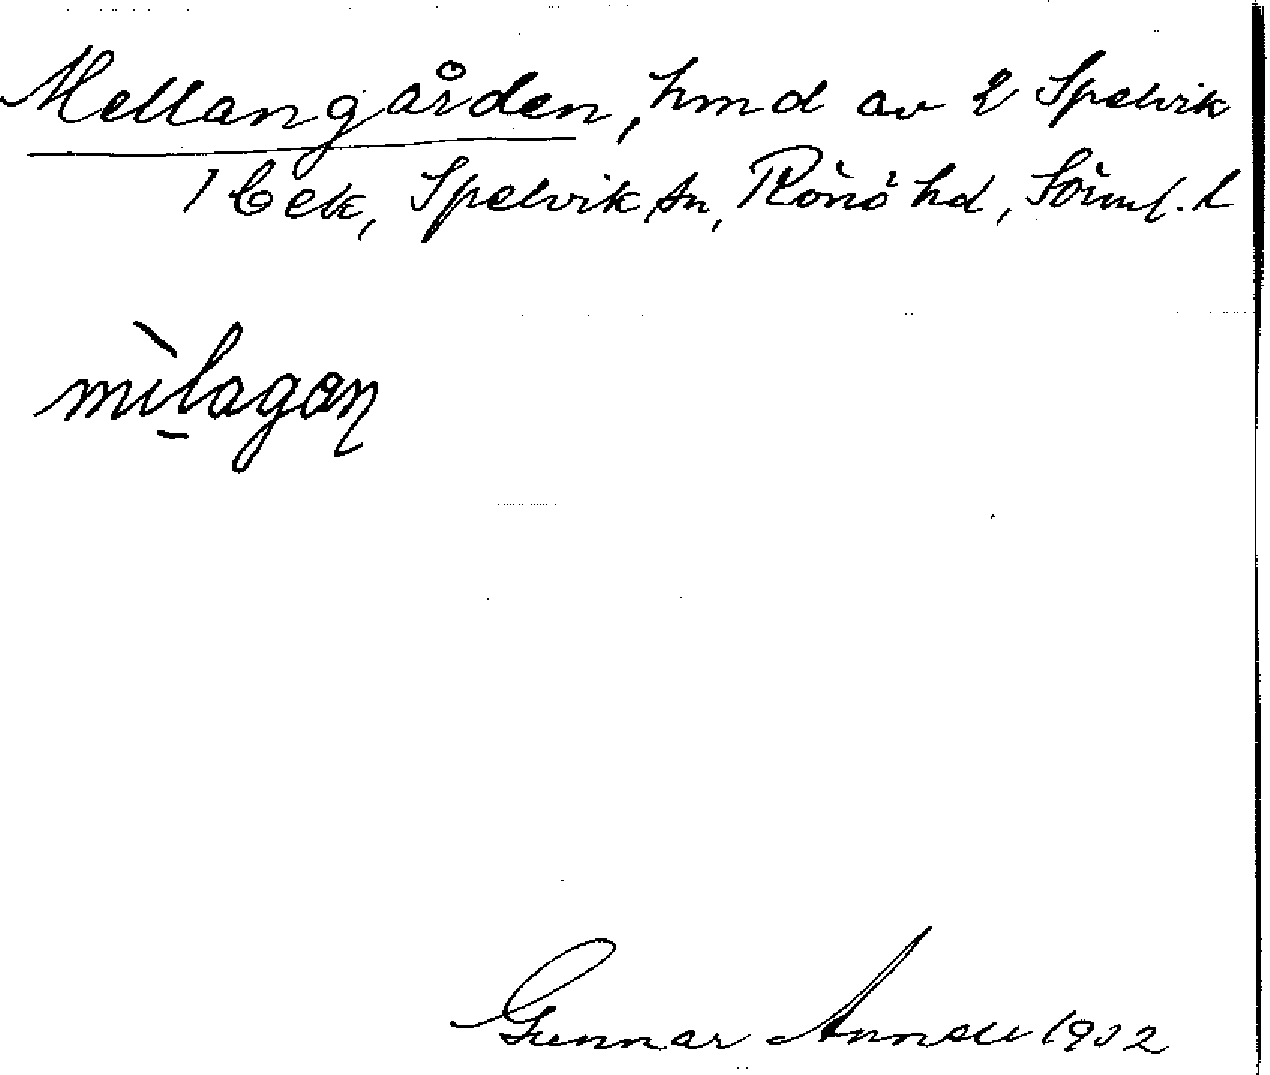 Mellangården, hmd av 2 Spelvik
1 bek, Spelvik sn, Rönö hd, Söml. l
Gunnar Annell 1932